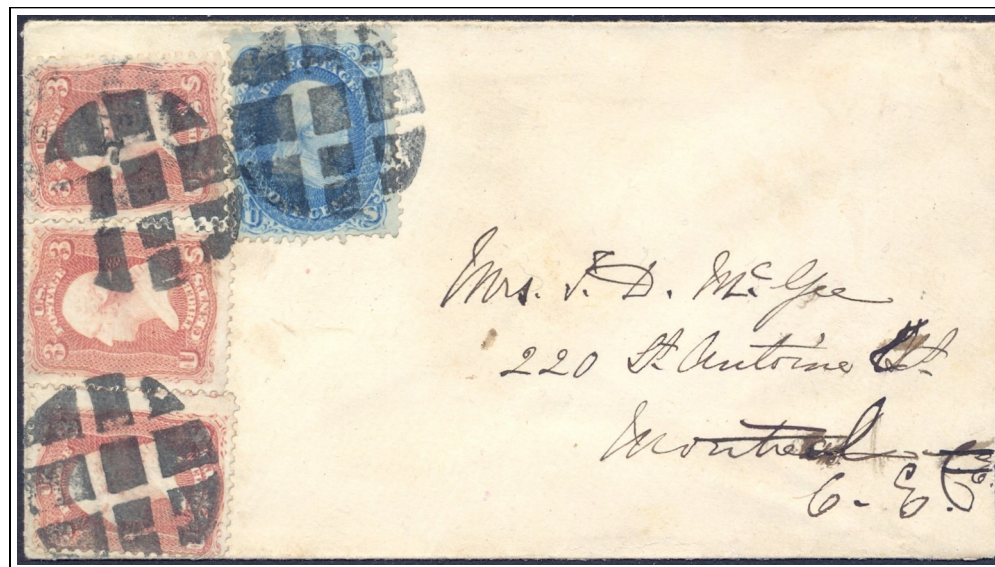 U.S. POSTAGE
ONE CENT
U S
3 3
U.S. POSTAGE
THREE CENTS
U S
3 3
U S
3
Mrs. T. D. McGee
220 St. Antoine St.
Montreal
C. E.